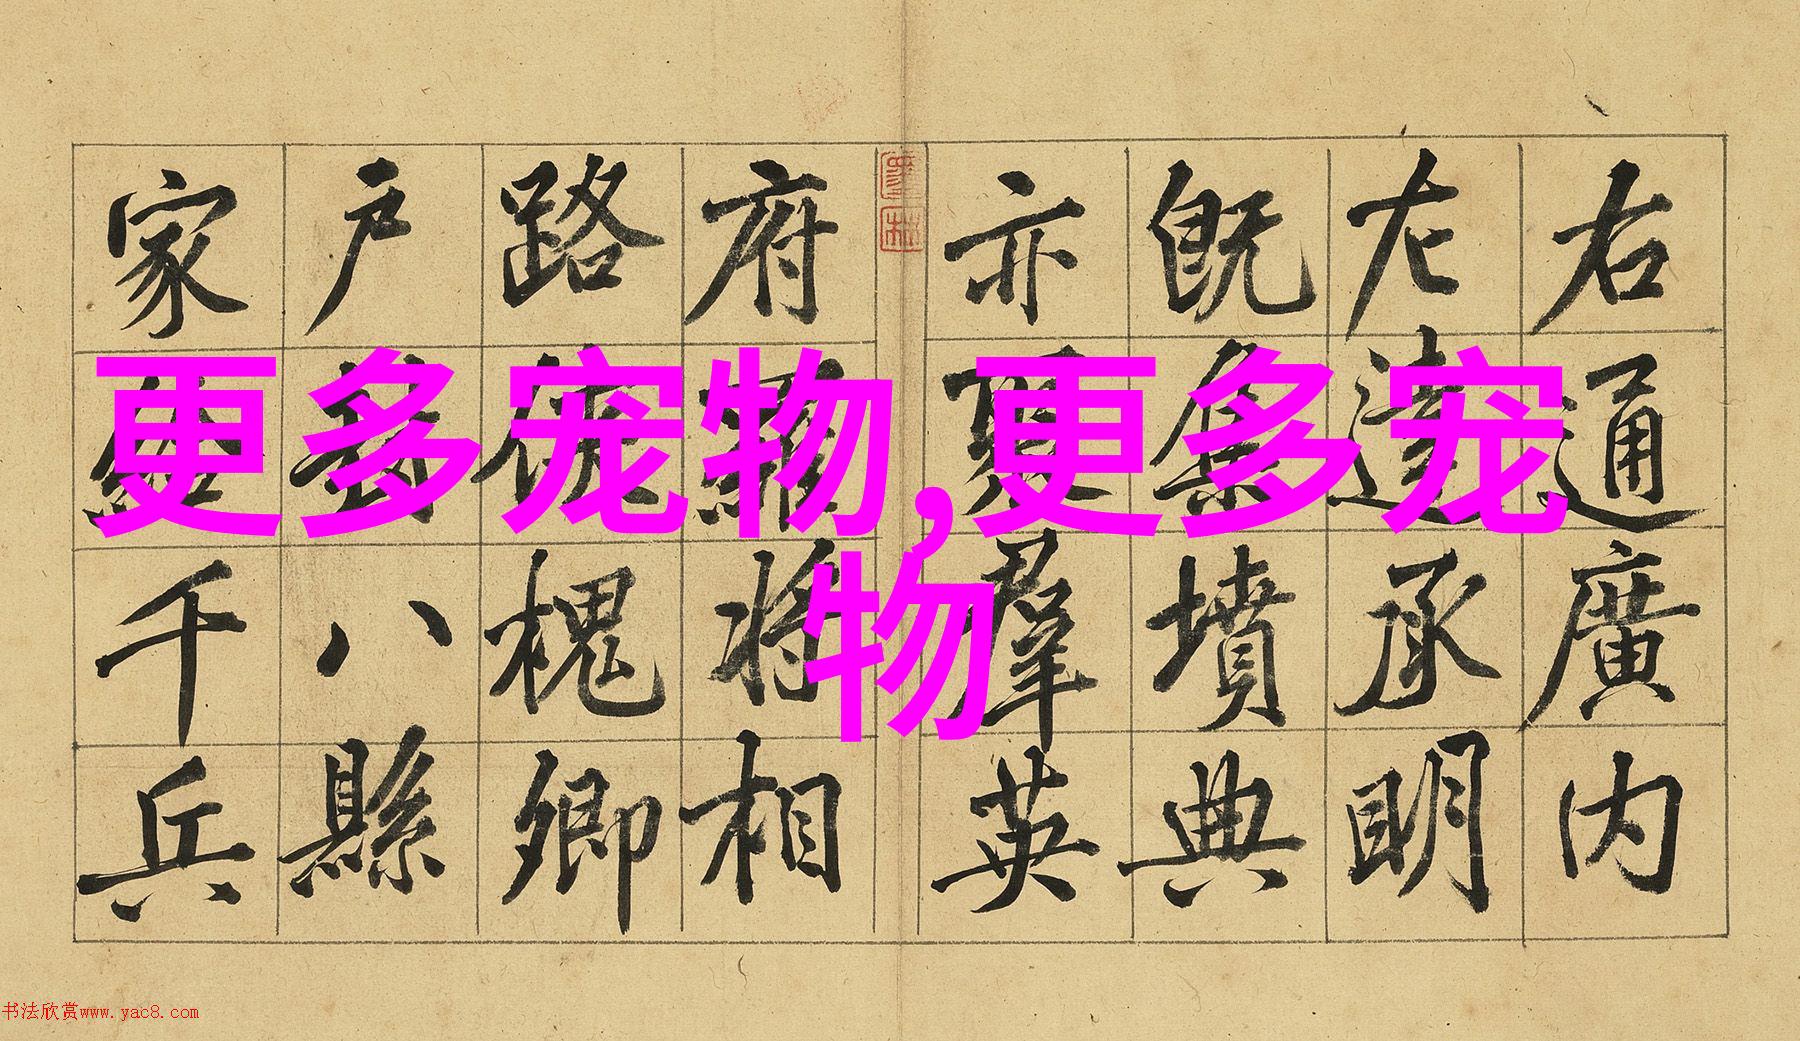 更多宠物,更多宠
物
右通廣内
左達承明
既集墳典
亦聚羣英
府羅將相
路俠槐卿
户封八縣
家給千兵
书法欣赏www.yac8.com